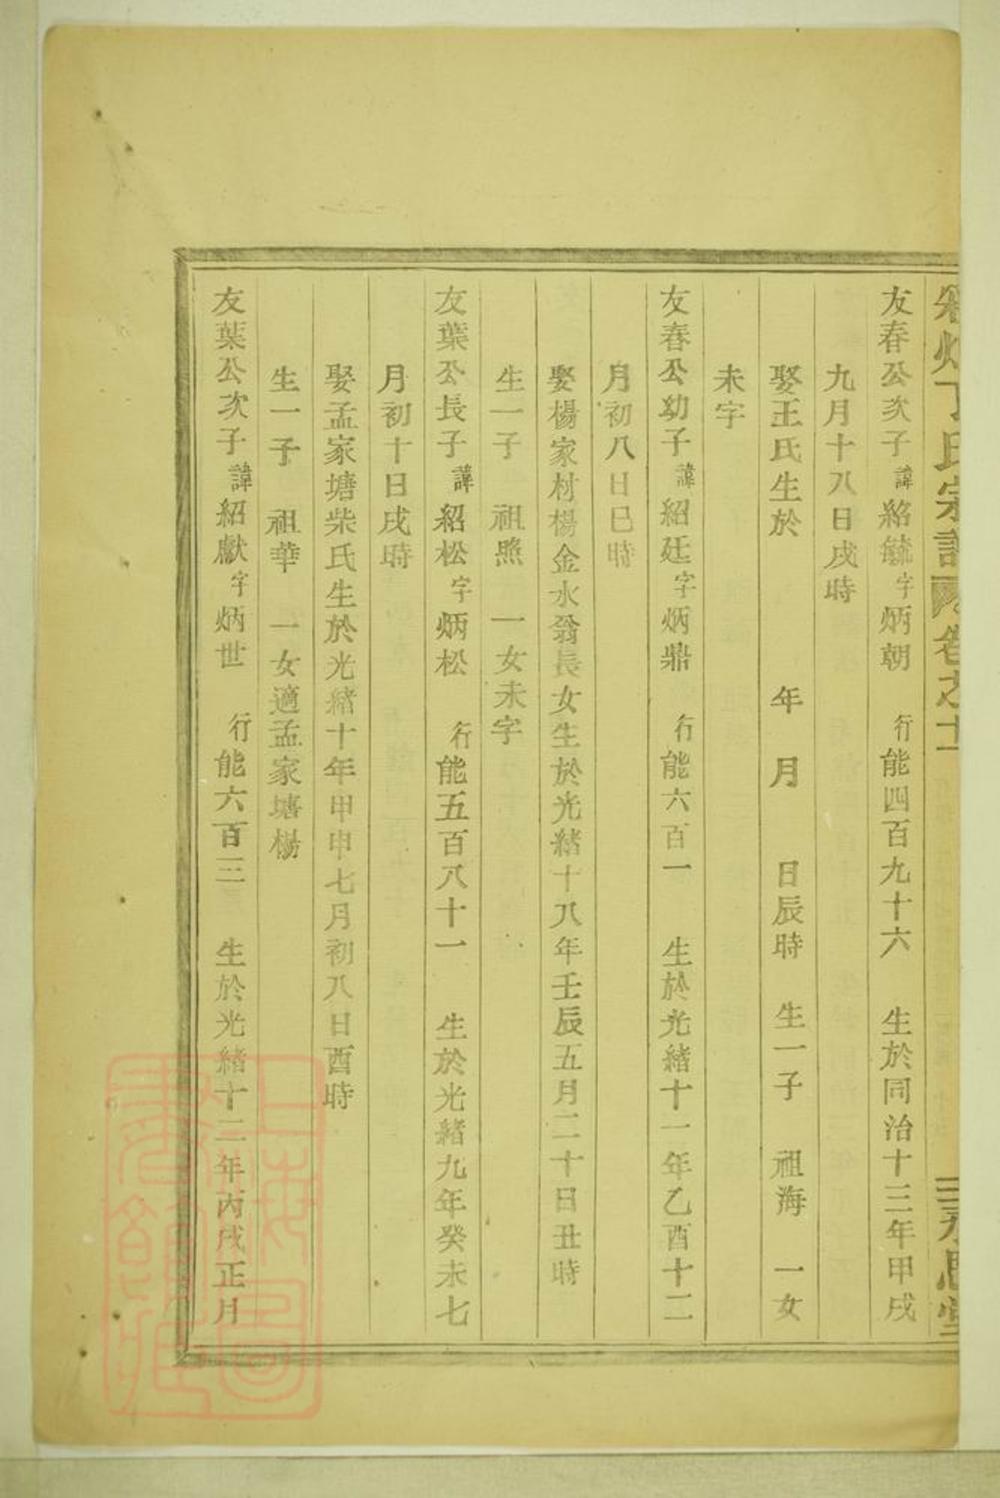 丁氏宗譜 卷之十一 永思堂
友春公次子諱紹毓字炳朝 行能四百九十六 生於同治十三年甲戌
九月十八日戌時
娶王氏生於 年 月 日辰時 生一子 祖海 一女
未字
友春公幼子諱紹廷字炳鼎 行能六百一 生於光緒十一年乙酉十二
月初八日巳時
娶楊家村楊金水翁長女生於光緒十八年壬辰五月二十日丑時
生一子 祖煦 一女未字
友葉公長子諱紹松字炳松 行能五百八十一 生於光緒九年癸未七
月初十日戌時
娶孟家塘柴氏生於光緒十年甲申七月初八日酉時
生一子 祖華 一女適孟家塘楊
友葉公次子諱紹獻字炳世 行能六百三 生於光緒十二年丙戌正月
上海圖書館藏